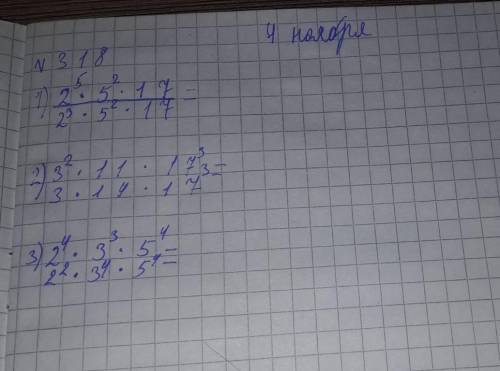 4 ноября
№ 318
1) 2⁵ · 5² · 17 =
2³ · 5² · 17
2) 3² · 11 · 17³ =
3 · 11 · 17³
3) 2⁴ · 3³ · 5⁴ =
2² · 3⁴ · 5⁴